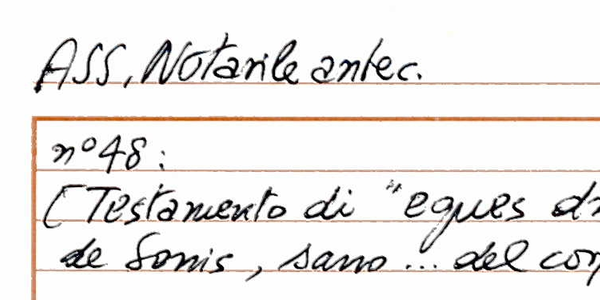 ASS, Notarile antec.
n° 48:
[Testamento di "eques
de Sonis, sano... del